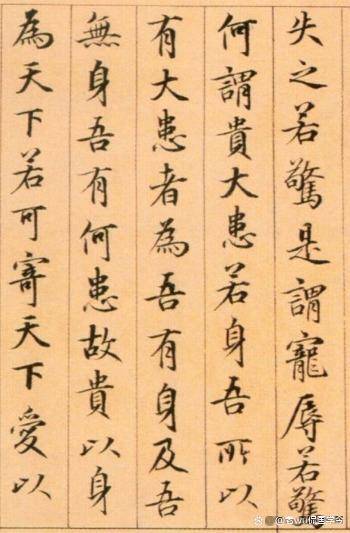 失之若驚是謂寵辱若驚
何謂貴大患若身吾所以
有大患者為吾有身及吾
無身吾有何患故貴以身
為天下若可寄天下愛以